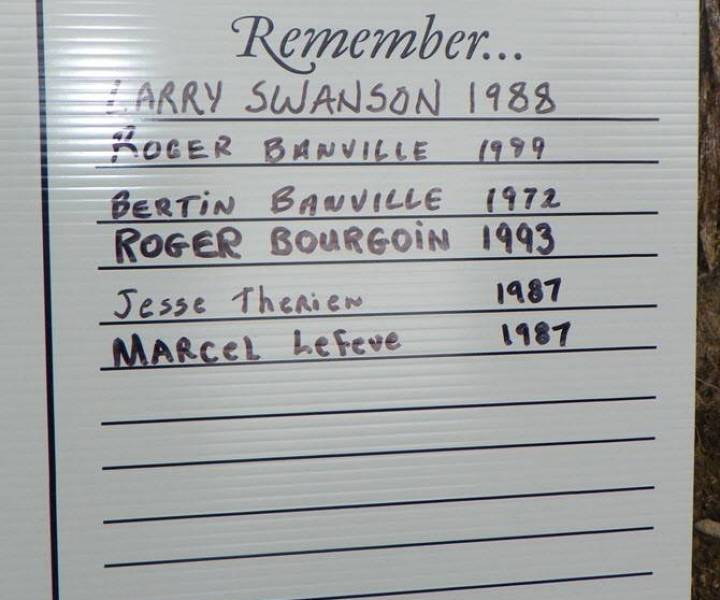 Remember...
LARRY SWANSON 1988
ROGER BANVILLE 1999
BERTIN BANVILLE 1972
ROGER BOURGOIN 1993
Jesse Therien 1987
MARCEL LeFeve 1987